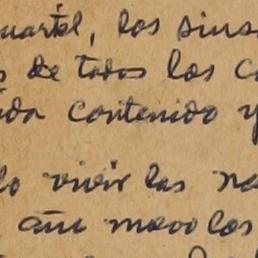 cuartel, los sins
s de todos los c
ida contenido y
lo vivir las ne
aún movo los